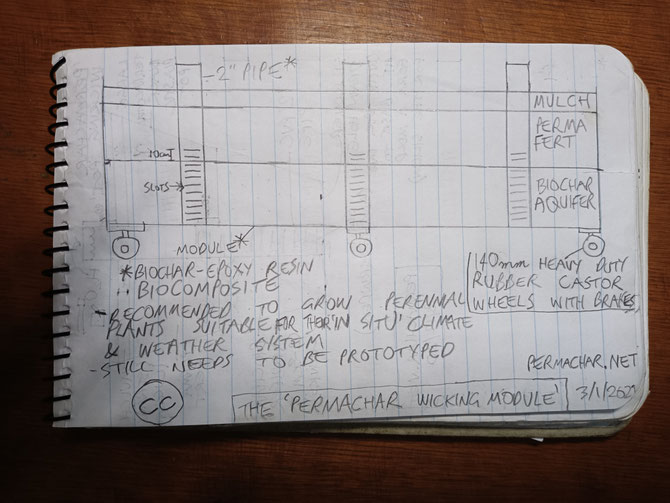 2" PIPE*
MULCH
PERMA
FERT
10cm
SLOTS
BIOCHAR
AQUIFER
MODULE*
*BIOCHAR-EPOXY RESIN
BIOCOMPOSITE
- RECOMMENDED TO GROW PERENNIAL
PLANTS SUITABLE FOR THEIR 'IN SITU' CLIMATE
& WEATHER SYSTEM
- STILL NEEDS TO BE PROTOTYPED
140mm HEAVY DUTY
RUBBER CASTOR
WHEELS WITH BRAKES
PERMACHAR.NET
CC
THE 'PERMACHAR WICKING MODULE'